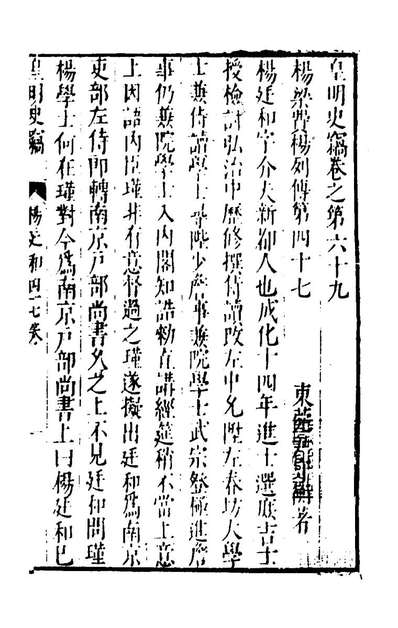 皇明史竊卷之第六十九
楊梁費楊列傳第四十七
東莞尹守衡著
楊廷和字介夫新都人也成化十四年進士選庶吉士
授檢討弘治中歷修撰侍讀改左中允陞左春坊大學
士兼侍讀學士尋陞少詹事兼院學士武宗登極進詹
事仍兼院學士入內閣知誥勅直講經筵稍不當上意
上因語內臣瑾非有意督過之瑾遂擬出廷和爲南京
吏部左侍郎轉南京戶部尚書久之上不見廷和問瑾
楊學士何在瑾對今爲南京戶部尚書上曰楊廷和已
皇明史竊
楊廷和四十七卷
一